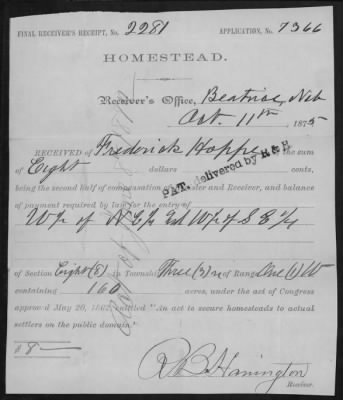 FINAL RECEIVER'S RECEIPT, No. 2281 APPLICATION, No. 7366
HOMESTEAD.
Receiver's Office, Beatrice, Neb
Oct 11th, 1875
RECEIVED of Frederick Hoppe the sum
of Eight dollars cents,
being the second half of compensation of Register and Receiver, and balance
of payment required by law for the entry of
W½ of N.E¼ and W½ of S E¼
of Section Eight (8) in Township Three (3) N of Range One (1) W
containing 160 acres, under the act of Congress
approved May 20, 1862, entitled "An act to secure homesteads to actual
settlers on the public domain."
$ 8
R B Harrington
Receiver.
PAT. delivered by R & R